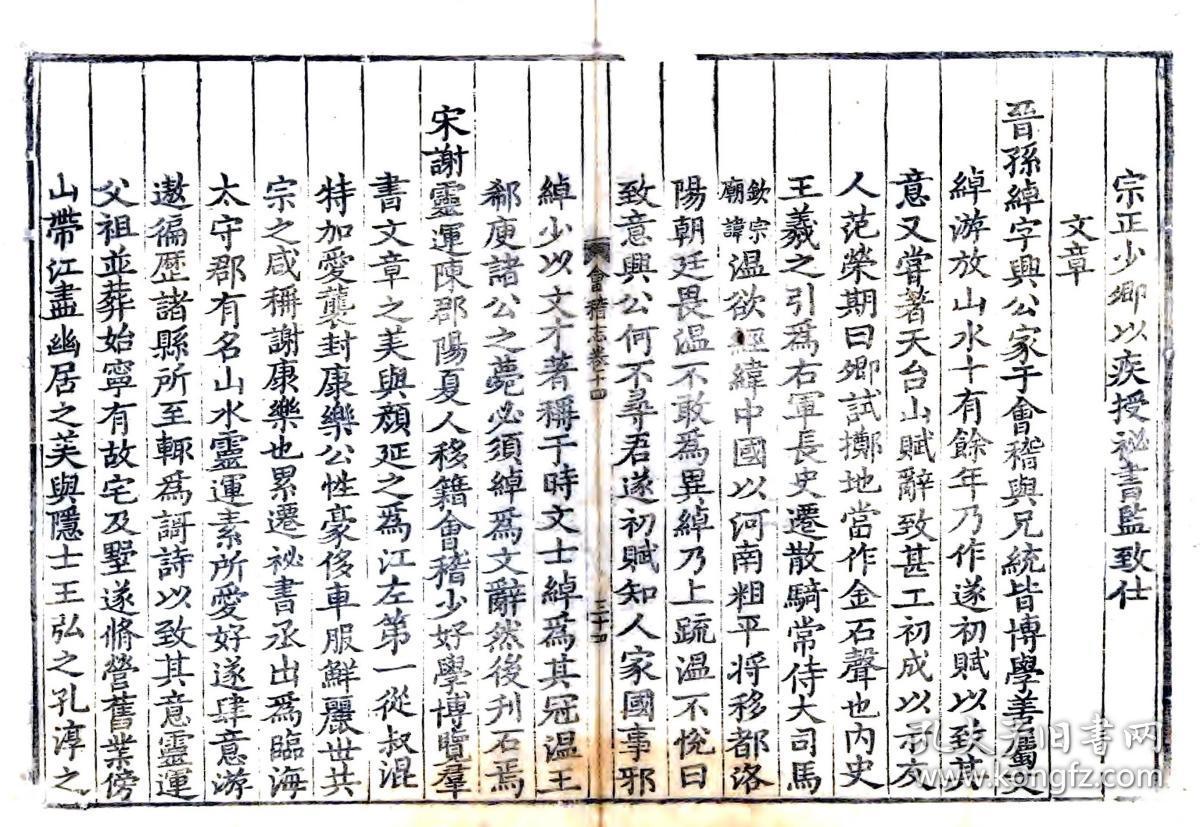 宗正少卿以疾授祕書監致仕
文章
晉孫綽字興公家于會稽與兄統皆博學善屬文
綽游放山水十有餘年乃作遂初賦以致其
意又嘗著天台山賦辭致甚工初成以示友
人范榮期曰卿試擲地當作金石聲也內史
王羲之引爲右軍長史遷散騎常侍大司馬
欽宗廟諱溫欲經緯中國以河南粗平将移都洛
陽朝廷畏溫不敢爲異綽乃上疏溫不悅曰
致意興公何不尋君遂初賦知人家國事邪
綽少以文才著稱于時文士綽爲其冠溫王
郗庾諸公之薨必須綽爲文辭然後刋石焉
宋謝靈運陳郡陽夏人移籍會稽少好學博覽羣
書文章之美與顏延之爲江左第一從叔混
特加愛襲封康樂公性豪侈車服鮮麗世共
宗之咸稱謝康樂也累遷祕書丞出爲臨海
太守郡有名山水靈運素所愛好遂肆意游
遨徧歷諸縣所至輒爲謌詩以致其意靈運
父祖並葬始寧有故宅及墅遂脩營舊業傍
山帶江盡幽居之美與隱士王弘之孔淳之
會稽志卷十四
三十四
孔夫子旧书网
www.kongfz.com